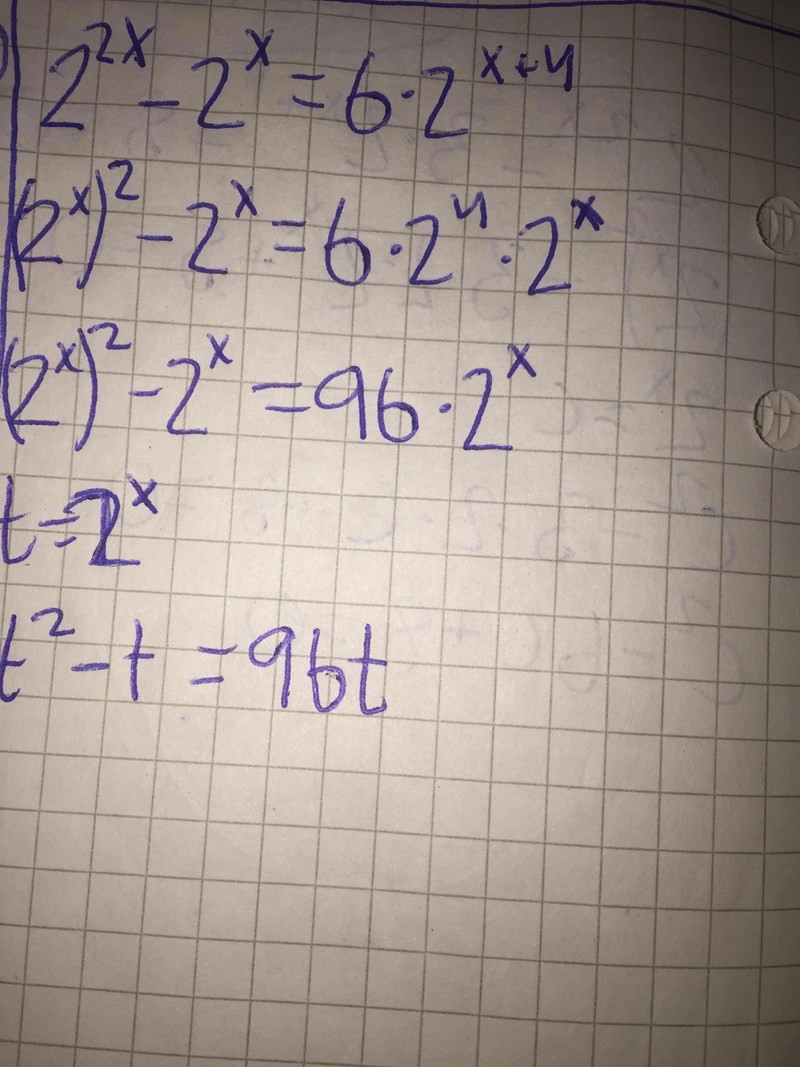 2^{2x} - 2^x = 6 · 2^{x+4}
(2^x)^2 - 2^x = 6 · 2^4 · 2^x
(2^x)^2 - 2^x = 96 · 2^x
t = 2^x
t^2 - t = 96t